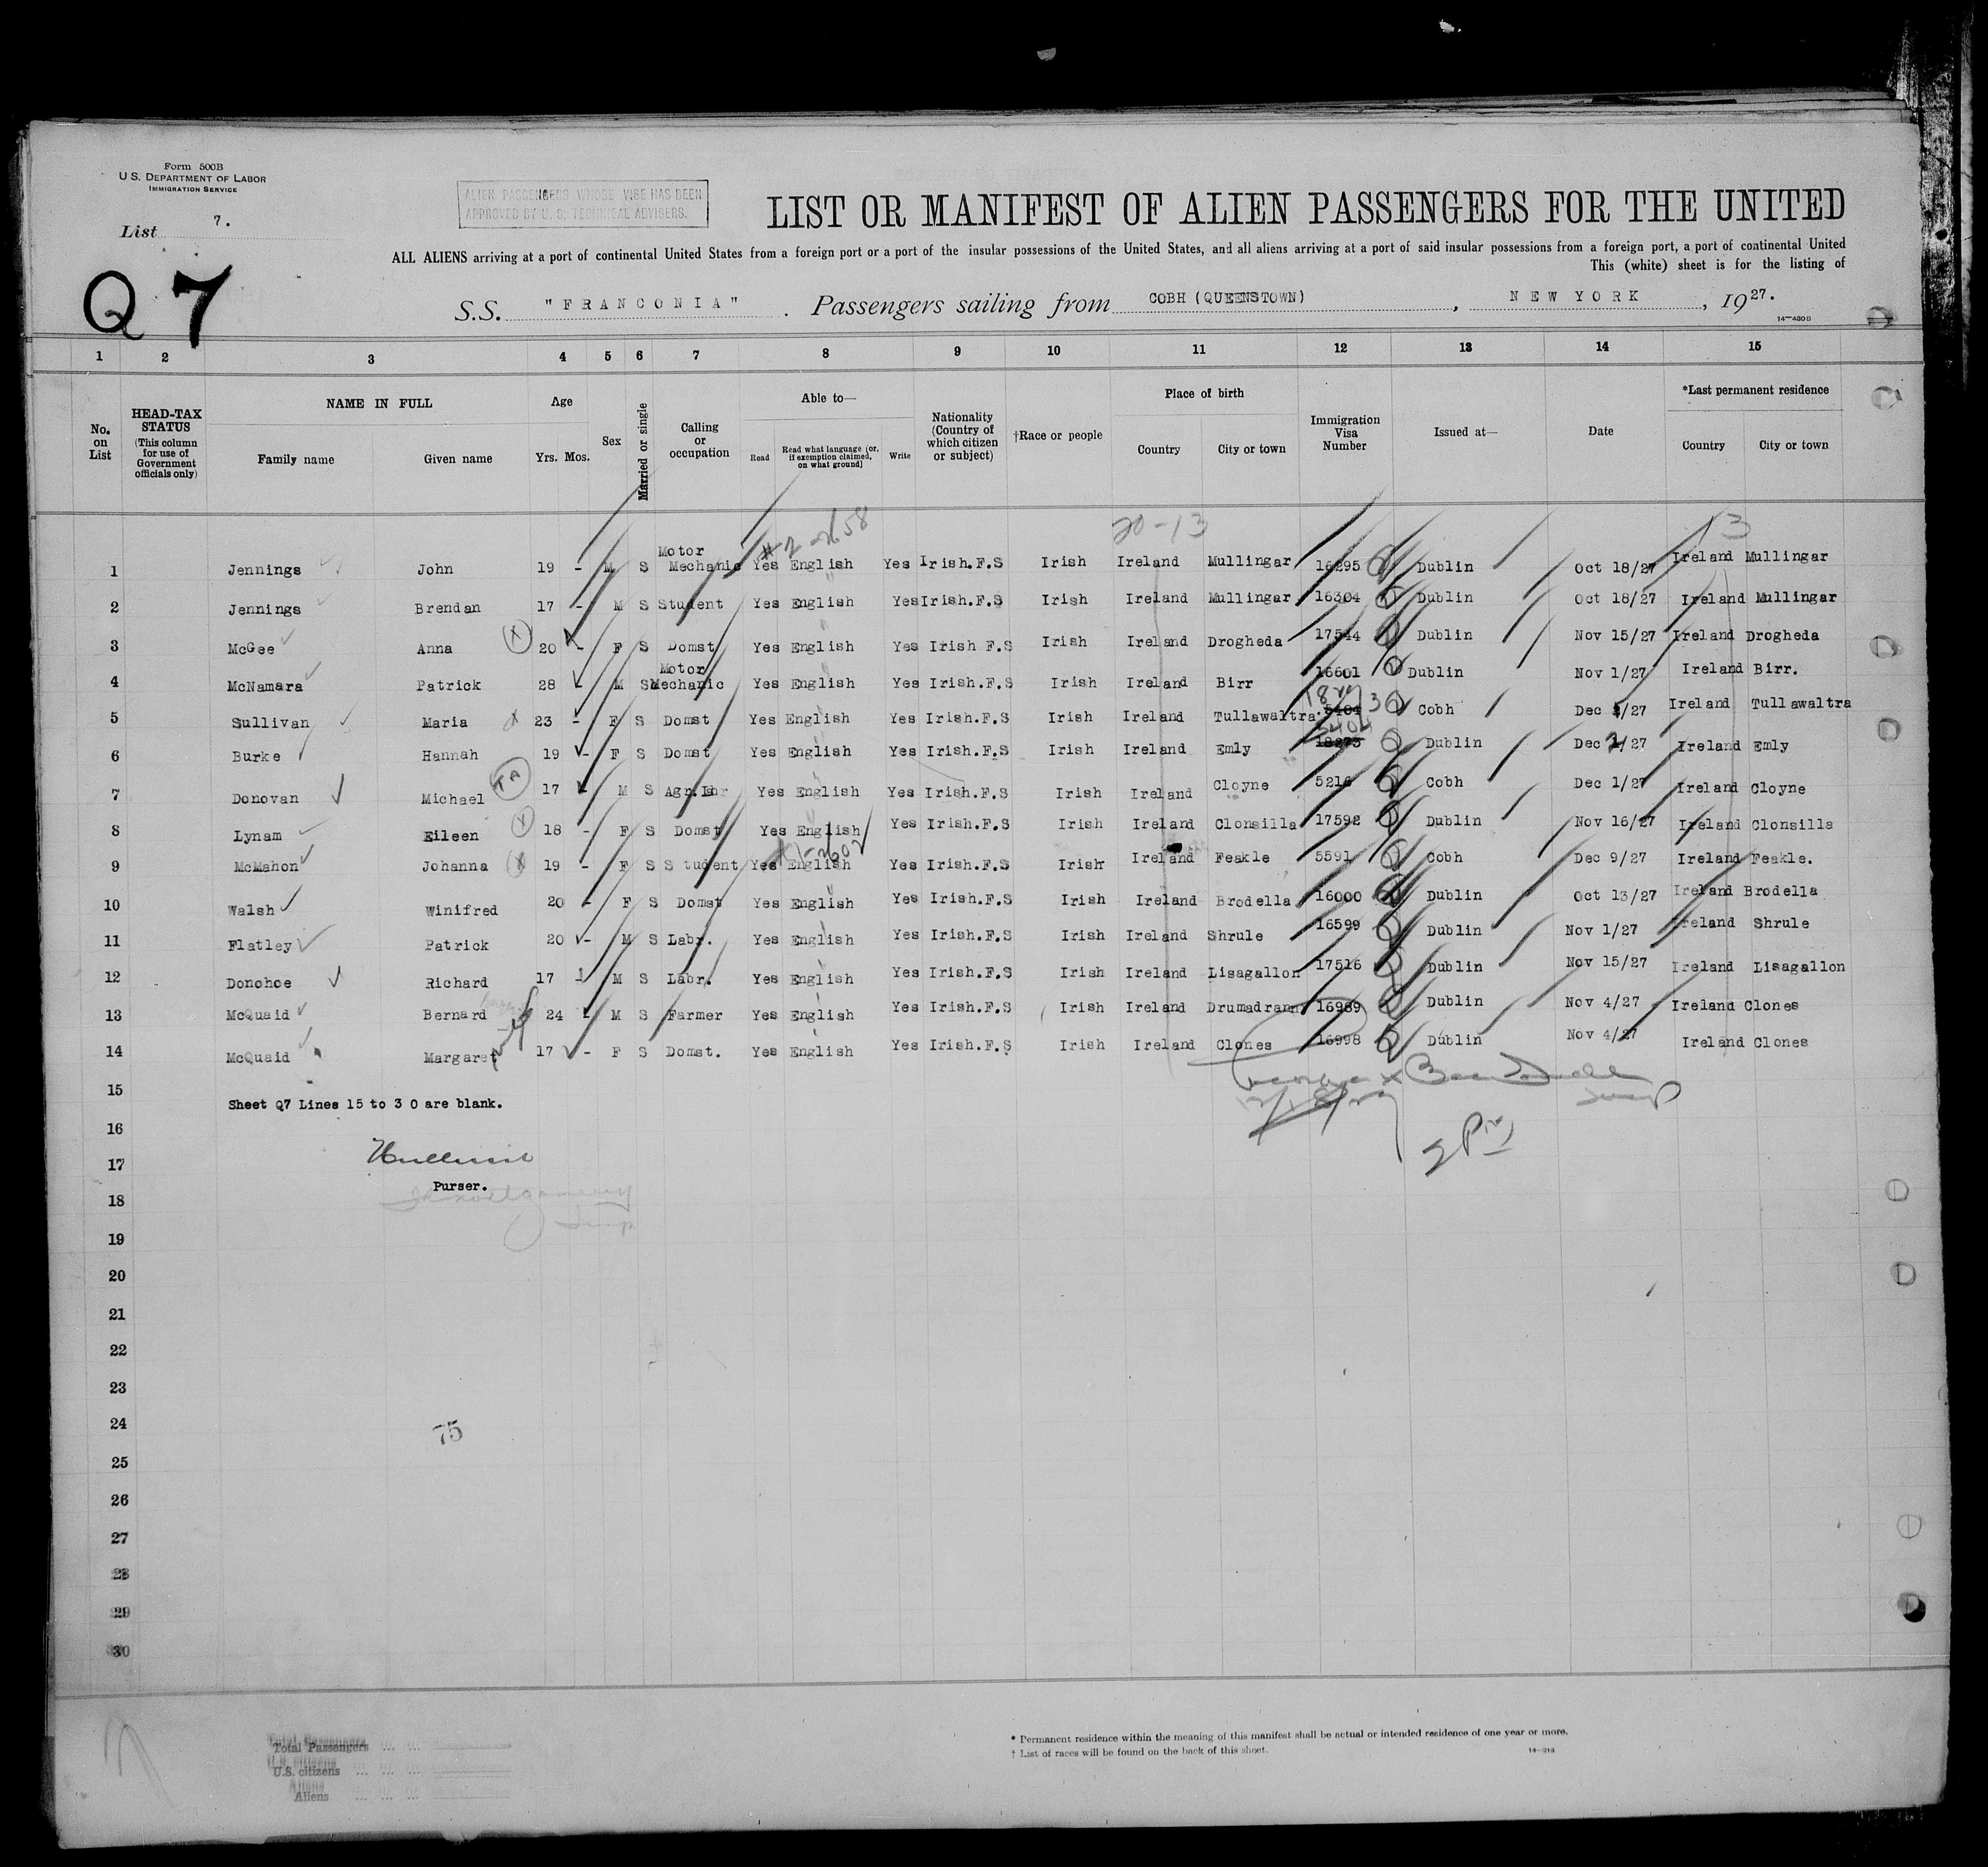 Form 500B
U.S. DEPARTMENT OF LABOR
IMMIGRATION SERVICE
List 7.
ALIEN PASSENGERS WHOSE VISE HAS BEEN
APPROVED BY U. S. TECHNICAL ADVISERS.
Q 7
LIST OR MANIFEST OF ALIEN PASSENGERS FOR THE UNITED
ALL ALIENS arriving at a port of continental United States from a foreign port or a port of the insular possessions of the United States, and all aliens arriving at a port of said insular possessions from a foreign port, a port of continental United
This (white) sheet is for the listing of
S.S. "FRANCONIA". Passengers sailing from COBH (QUEENSTOWN), NEW YORK, 1927.
14—430B
1 2 3 4 5 6 7 8 9 10 11 12 13 14 15
No. on List
HEAD-TAX STATUS (This column for use of Government officials only)
NAME IN FULL
Family name Given name
Age
Yrs. Mos.
Sex
Married or single
Calling or occupation
Able to—
Read Read what language (or, if exemption claimed, on what ground) Write
Nationality (Country of which citizen or subject)
†Race or people
Place of birth
Country City or town
Immigration Visa Number
Issued at—
Date
*Last permanent residence
Country City or town
20-13 13
1 Jennings John 19 - M S Motor Mechanic Yes English Yes Irish.F.S Irish Ireland Mullingar 16295 Dublin Oct 18/27 Ireland Mullingar
2 Jennings Brendan 17 - M S Student Yes English Yes Irish.F.S Irish Ireland Mullingar 16304 Dublin Oct 18/27 Ireland Mullingar
3 McGee Anna X 20 - F S Domst Yes English Yes Irish F.S Irish Ireland Drogheda 17544 Dublin Nov 15/27 Ireland Drogheda
4 McNamara Patrick 28 - M S Motor Mechanic Yes English Yes Irish.F.S Irish Ireland Birr 16601 Dublin Nov 1/27 Ireland Birr.
5 Sullivan Maria X 23 - F S Domst Yes English Yes Irish.F.S Irish Ireland Tullawaltra. 5404 Cobh Dec /27 Ireland Tullawaltra
6 Burke Hannah 19 - F S Domst Yes English Yes Irish.F.S Irish Ireland Emly 5404 18273 Dublin Dec 2/27 Ireland Emly
7 Donovan Michael TA 17 - M S Agr.Lbr Yes English Yes Irish.F.S Irish Ireland Cloyne 5216 Cobh Dec 1/27 Ireland Cloyne
8 Lynam Eileen X 18 - F S Domst Yes English Yes Irish.F.S Irish Ireland Clonsilla 17592 Dublin Nov 16/27 Ireland Clonsilla
9 McMahon Johanna X 19 - F S Student Yes English Yes Irish.F.S Irish Ireland Feakle 5591 Cobh Dec 9/27 Ireland Feakle.
10 Walsh Winifred 20 - F S Domst Yes English Yes Irish.F.S Irish Ireland Brodella 16000 Dublin Oct 13/27 Ireland Brodella
11 Flatley Patrick 20 - M S Labr. Yes English Yes Irish.F.S Irish Ireland Shrule 16599 Dublin Nov 1/27 Ireland Shrule
12 Donohoe Richard 17 - M S Labr. Yes English Yes Irish.F.S Irish Ireland Lisagallon 17516 Dublin Nov 15/27 Ireland Lisagallon
13 McQuaid Bernard 24 - M S Farmer Yes English Yes Irish.F.S Irish Ireland Drumadrann 16989 Dublin Nov 4/27 Ireland Clones
14 McQuaid Margaret 17 - F S Domst. Yes English Yes Irish.F.S Irish Ireland Clones 16998 Dublin Nov 4/27 Ireland Clones
15
Sheet Q7 Lines 15 to 30 are blank.
16
17
Purser.
18
19
20
21
22
23
24
75
25
26
27
28
29
30
Total Passengers ... ...
U.S. citizens ... ... ...
Aliens ... ... ...
* Permanent residence within the meaning of this manifest shall be actual or intended residence of one year or more.
† List of races will be found on the back of this sheet.